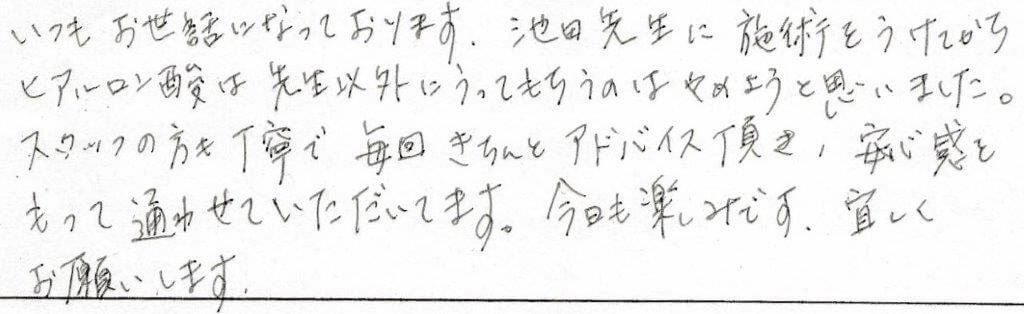 いつもお世話になっております. 池田先生に施術をうけてから
ヒアルロン酸は先生以外にうってもらうのはやめようと思いました。
スタッフの方も丁寧で毎回きちんとアドバイス頂き, 安心感を
もって通わせていただいてます。今日も楽しみです. 宜しく
お願いします.